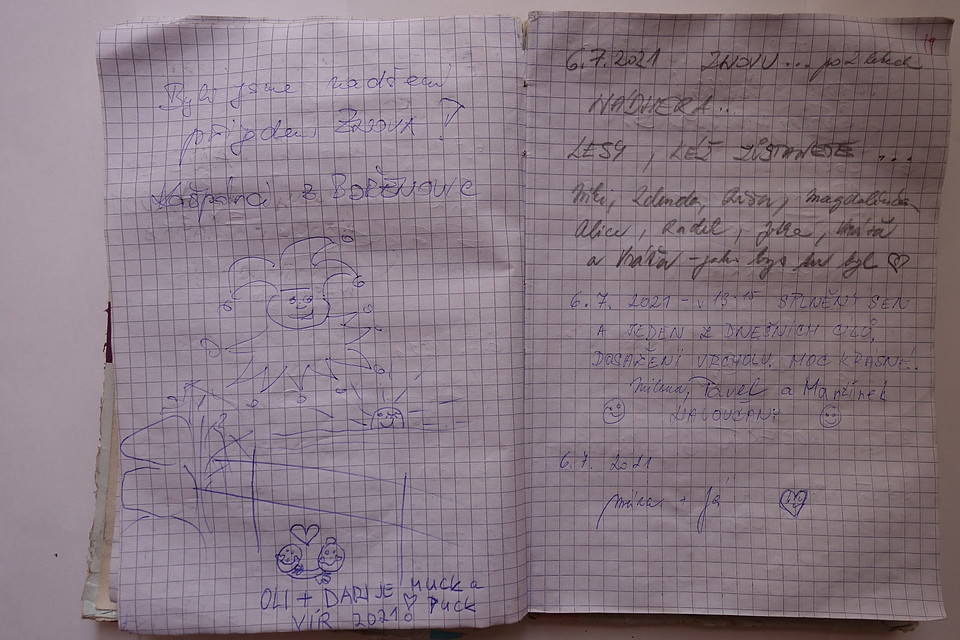 Byli jsme nadšeni
příjezdem ZNOVA!
Kašpárci z BOŘENOVIC
OLI + DARIJE MUCK a
VÍR 2021 PUCK
19
6.7.2021 ZNOVU ... po 2 letech
NÁDHERA...
LESY, LEŽ ZŮSTANETE ...
Niki, Zdenda, Magdalénka
Alice, Radek, Jitka,
a - jako bys tu byl ♡
6. 7. 2021 - v 13.15 SPLNĚNÝ SEN
A JEDEN Z DNEŠNÍCH CÍLŮ,
DOSAŽENÍ VRCHOLU. MOC KRÁSNÉ!
Milena, Pavel a Martínek
KALOUČANI
6. 7. 2021
+ Já